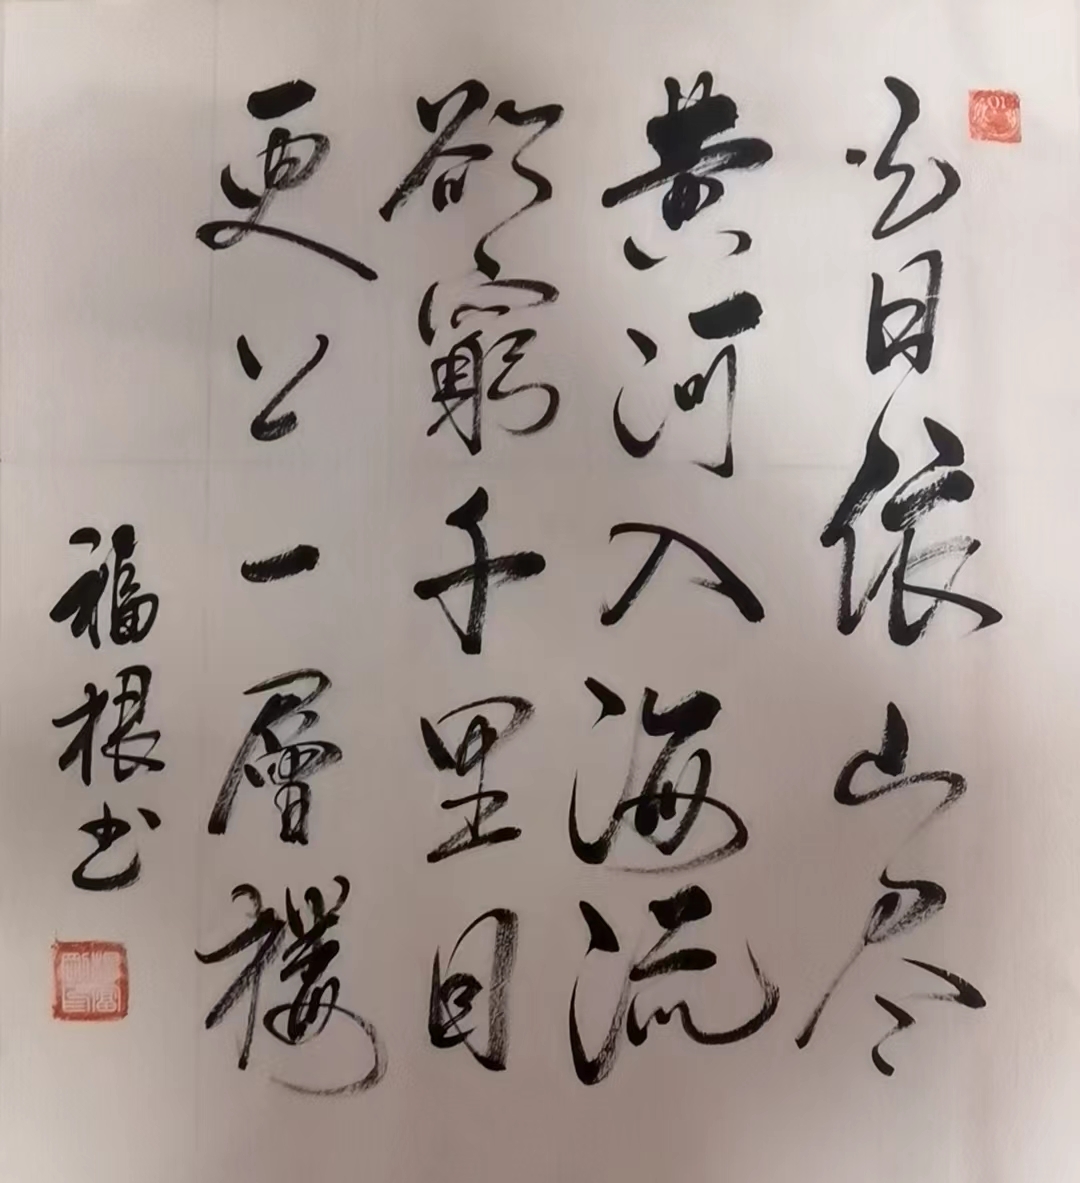 白日依山尽
黄河入海流
欲窮千里目
更上一層楼
福根书